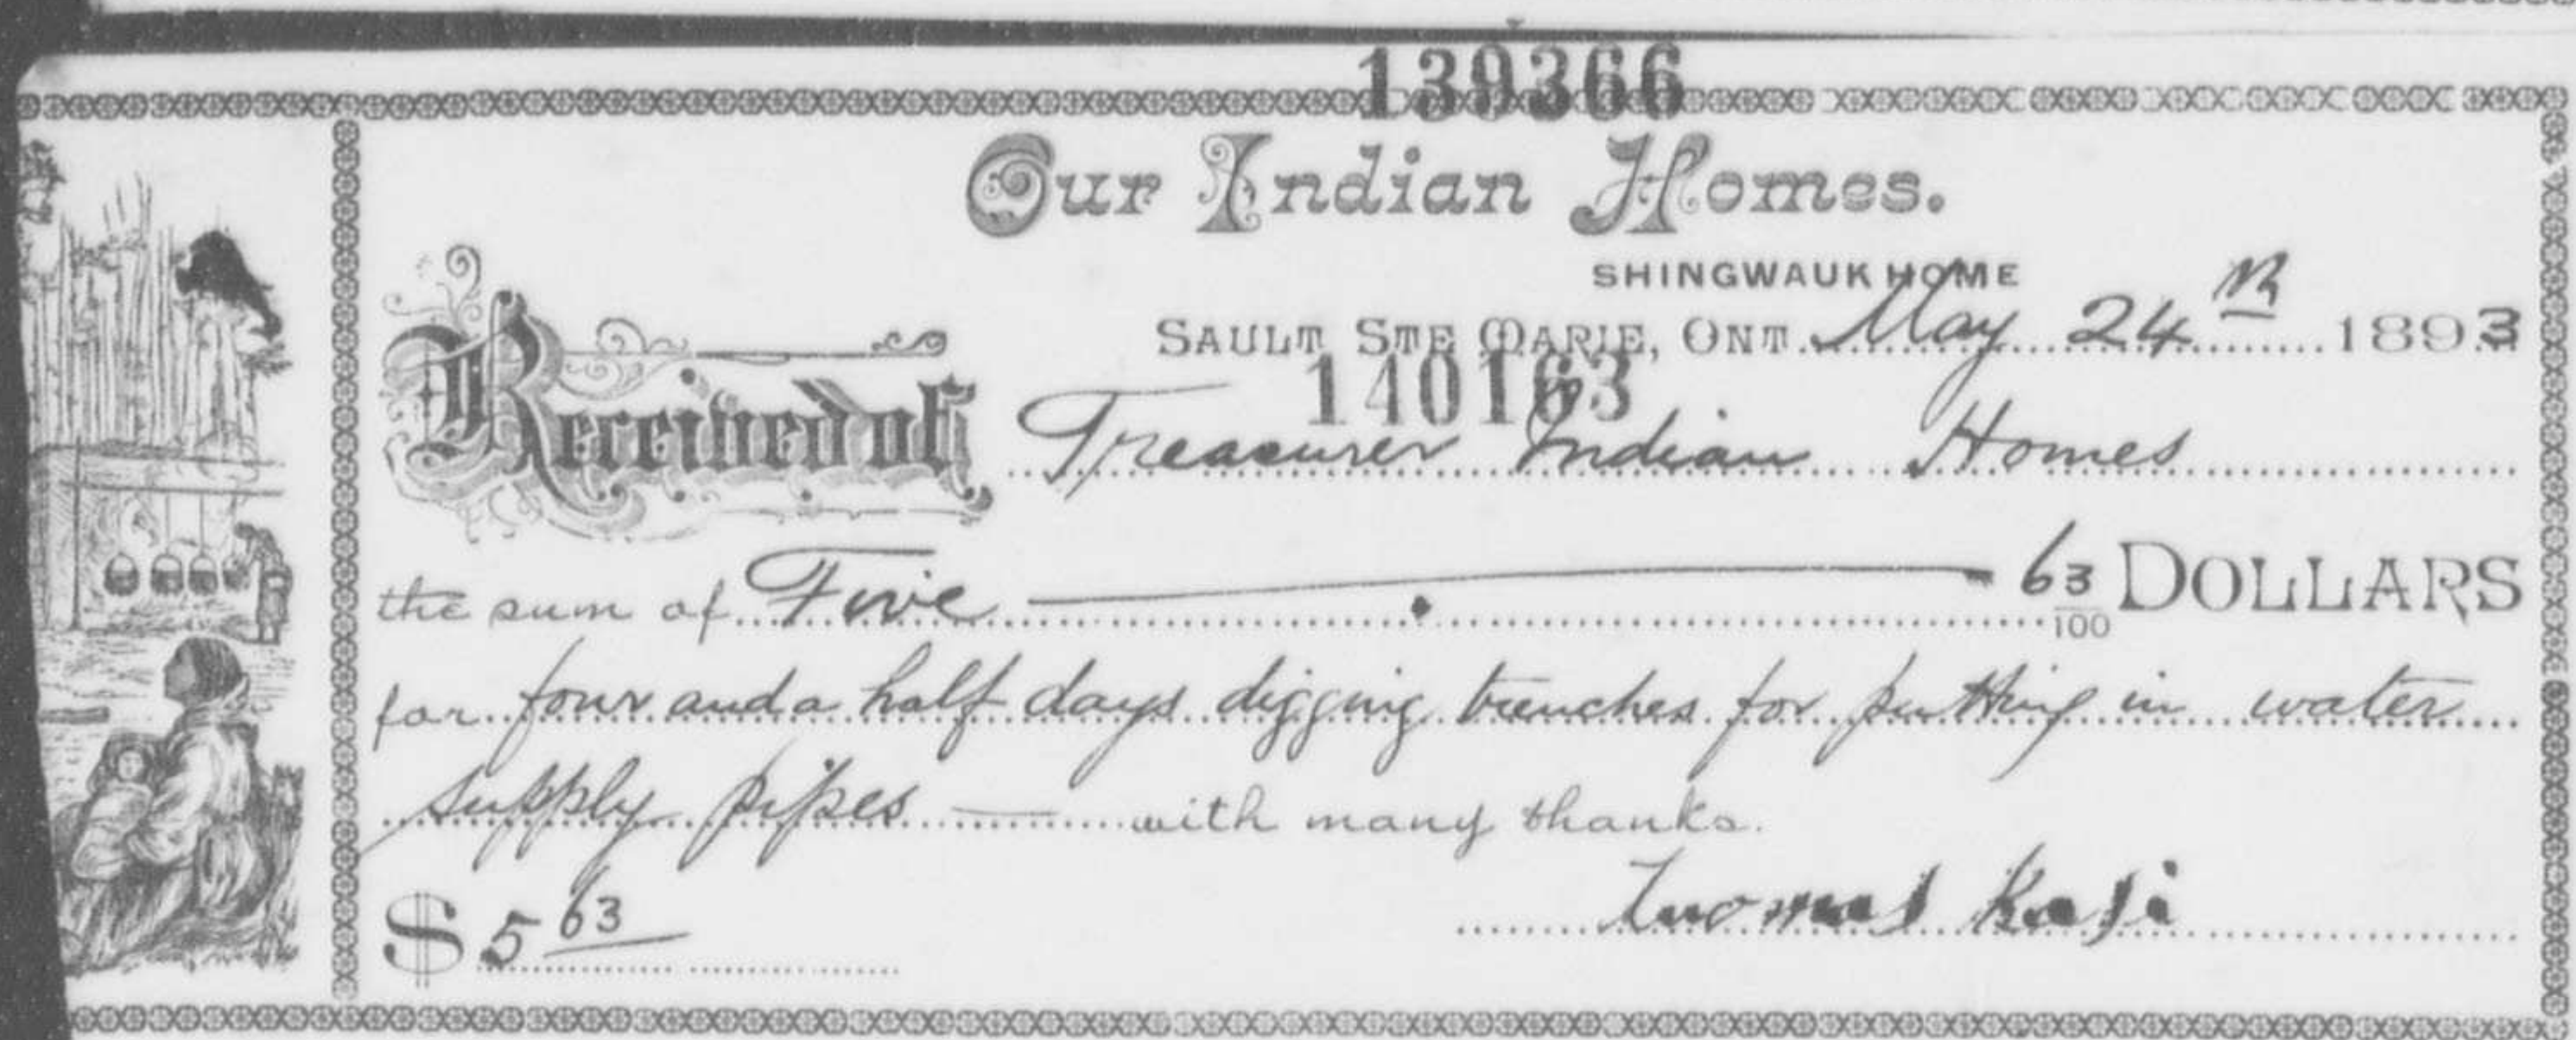 139366
Our Indian Homes.
SHINGWAUK HOME
SAULT STE MARIE, ONT. May 24th 1893
140163
Received of Treasurer Indian Homes
the sum of Five 63/100 DOLLARS
for four and a half days digging trenches for putting in water
supply pipes — with many thanks.
$5 63
Thomas